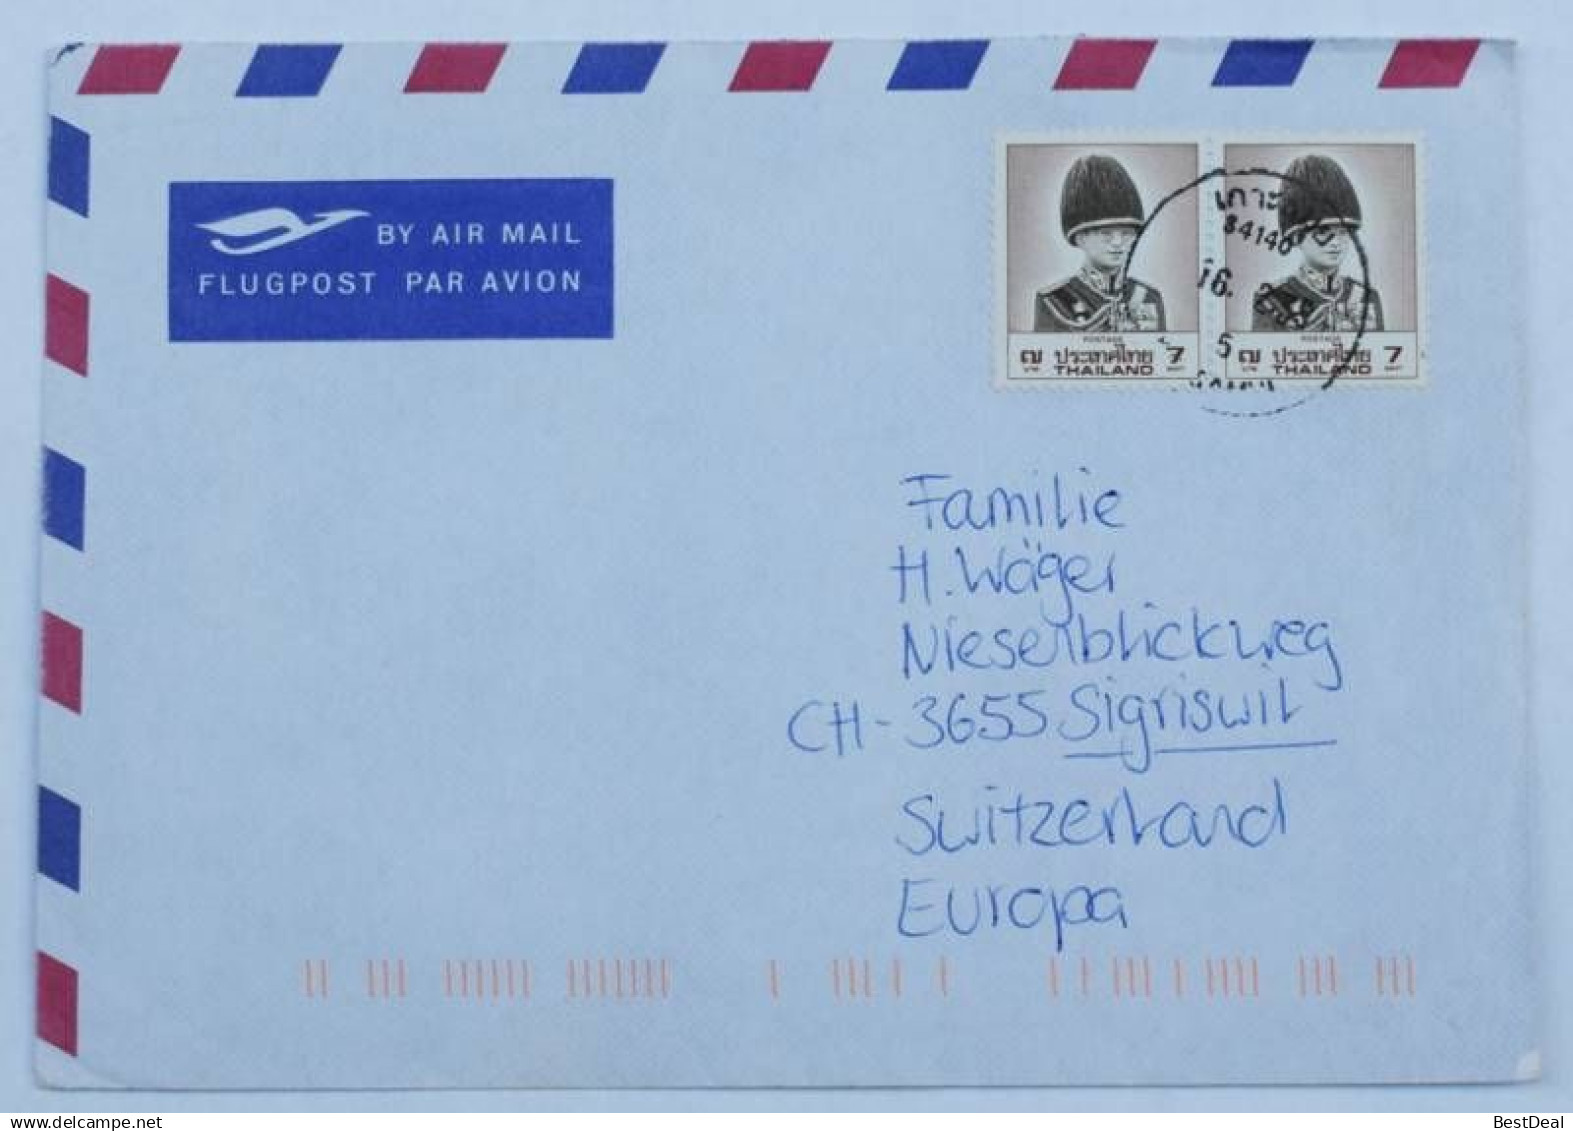 BY AIR MAIL
FLUGPOST PAR AVION
POSTAGE
๗ ประเทศไทย 7
บาท THAILAND BAHT
POSTAGE
๗ ประเทศไทย 7
บาท THAILAND BAHT
84140
16.
5
Familie
H. Wäger
Niesenblickweg
CH-3655 Sigriswil
Switzerland
Europa
BestDeal